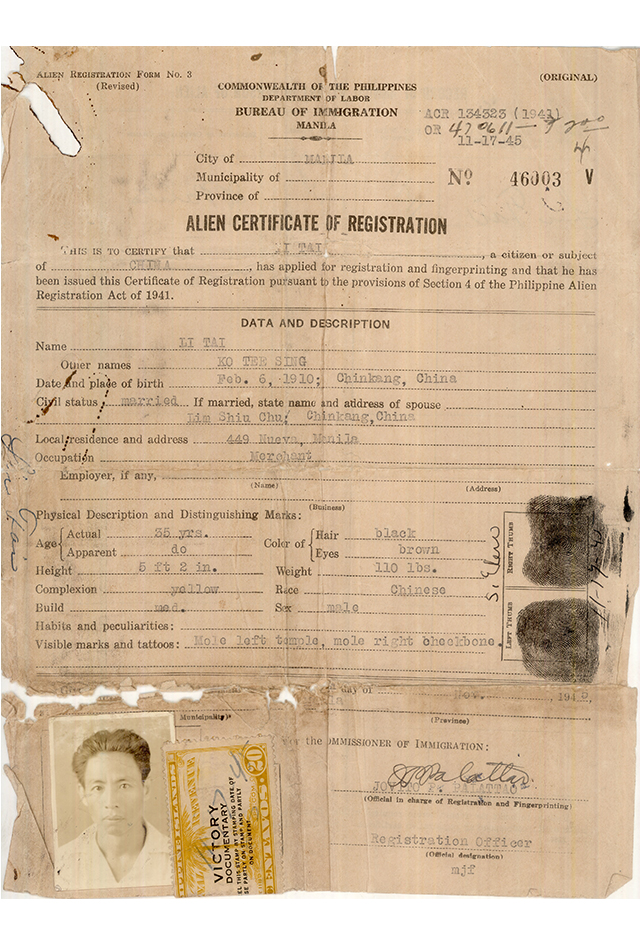 ALIEN REGISTRATION FORM NO. 3
(Revised)
(ORIGINAL)
COMMONWEALTH OF THE PHILIPPINES
DEPARTMENT OF LABOR
BUREAU OF IMMIGRATION
MANILA
ACR 134323 (1941)
OR 470611
11-17-45
City of MANILA
Municipality of
Province of
No 46003 V
ALIEN CERTIFICATE OF REGISTRATION
THIS IS TO CERTIFY that LI TAI, a citizen or subject
of CHINA, has applied for registration and fingerprinting and that he has
been issued this Certificate of Registration pursuant to the provisions of Section 4 of the Philippine Alien
Registration Act of 1941.
DATA AND DESCRIPTION
Name LI TAI
Other names KO TEE SING
Date and place of birth Feb. 6, 1910; Chinkang, China
Civil status married If married, state name and address of spouse
Lim Shiu Chu; Chinkang,China
Local residence and address 449 Nueva, Manila
Occupation Merchant
Employer, if any,
(Name) (Address)
(Business)
Physical Description and Distinguishing Marks:
Age Actual 35 yrs. Color of Hair black
Apparent do Eyes brown
Height 5 ft 2 in. Weight 110 lbs.
Complexion yellow Race Chinese
Build med. Sex male
Habits and peculiarities:
Visible marks and tattoos: Mole left temple, mole right cheekbone.
RIGHT THUMB
LEFT THUMB
day of Nov. 194
Municipality) (Province)
OMMISSIONER OF IMMIGRATION:
P. PALATTAO
(Official in charge of Registration and Fingerprinting)
Registration Officer
(Official designation)
mjf
VICTORY
DOCUMENTARY
EL THIS STAMP BY STAMPING DATE OF
SE PARTLY ON STAMP AND PARTLY
ON DOCUMENT.
20